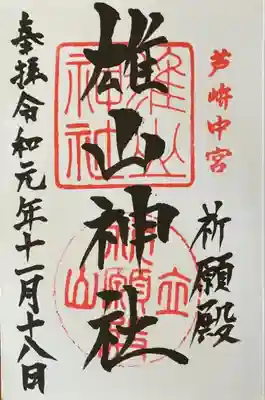 芦峅中宮
祈願殿
雄山神社
奉拝令和元年十一月十八日
雄山
神社
立
祈願殿
山